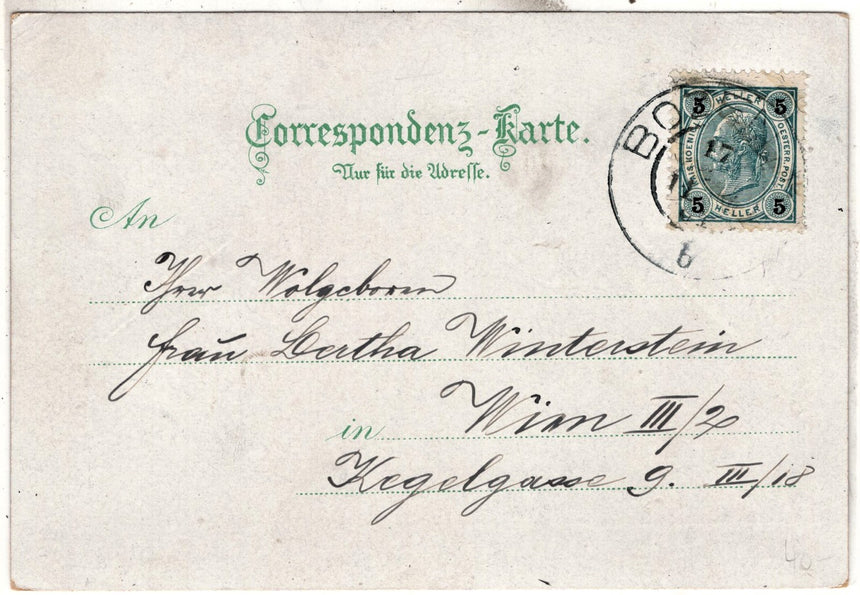 Correspondenz-Karte.
Nur für die Adresse.
5 HELLER 5
OESTERR. POST
5 HELLER 5
17
b
An
Ihrer Wolgeboren
Frau Bertha Winterstein
in Wien III/2
Kegelgasse 9. III/18
40-